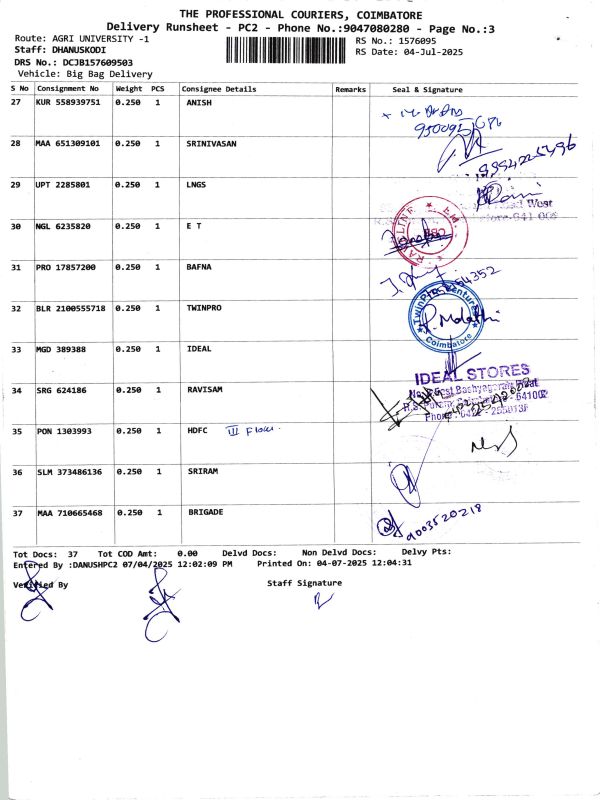 THE PROFESSIONAL COURIERS, COIMBATORE
Delivery Runsheet - PC2 - Phone No.:9047080280 - Page No.:3
Route: AGRI UNIVERSITY -1
RS No.: 1576095
Staff: DHANUSKODI
RS Date: 04-Jul-2025
DRS No.: DCJB157609503
Vehicle: Big Bag Delivery
S No Consignment No Weight PCS Consignee Details Remarks Seal & Signature
27 KUR 558939751 0.250 1 ANISH
28 MAA 651309101 0.250 1 SRINIVASAN
29 UPT 2285801 0.250 1 LNGS
30 NGL 6235820 0.250 1 E T
31 PRO 17857200 0.250 1 BAFNA
32 BLR 2100555718 0.250 1 TWINPRO
TwinPro Ventures
P. Malathi
Coimbatore
33 MGD 389388 0.250 1 IDEAL
IDEAL STORES
34 SRG 624186 0.250 1 RAVISAM
35 PON 1303993 0.250 1 HDFC III Floor.
36 SLM 373486136 0.250 1 SRIRAM
37 MAA 710665468 0.250 1 BRIGADE
9003520218
Tot Docs: 37 Tot COD Amt: 0.00 Delvd Docs: Non Delvd Docs: Delvy Pts:
Entered By :DANUSHPC2 07/04/2025 12:02:09 PM Printed On: 04-07-2025 12:04:31
Verified By Staff Signature